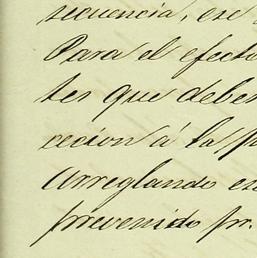 secuencia, ese
Para el efecto
tes que deben
reccion á la p
Arreglando en
prevenido pr.